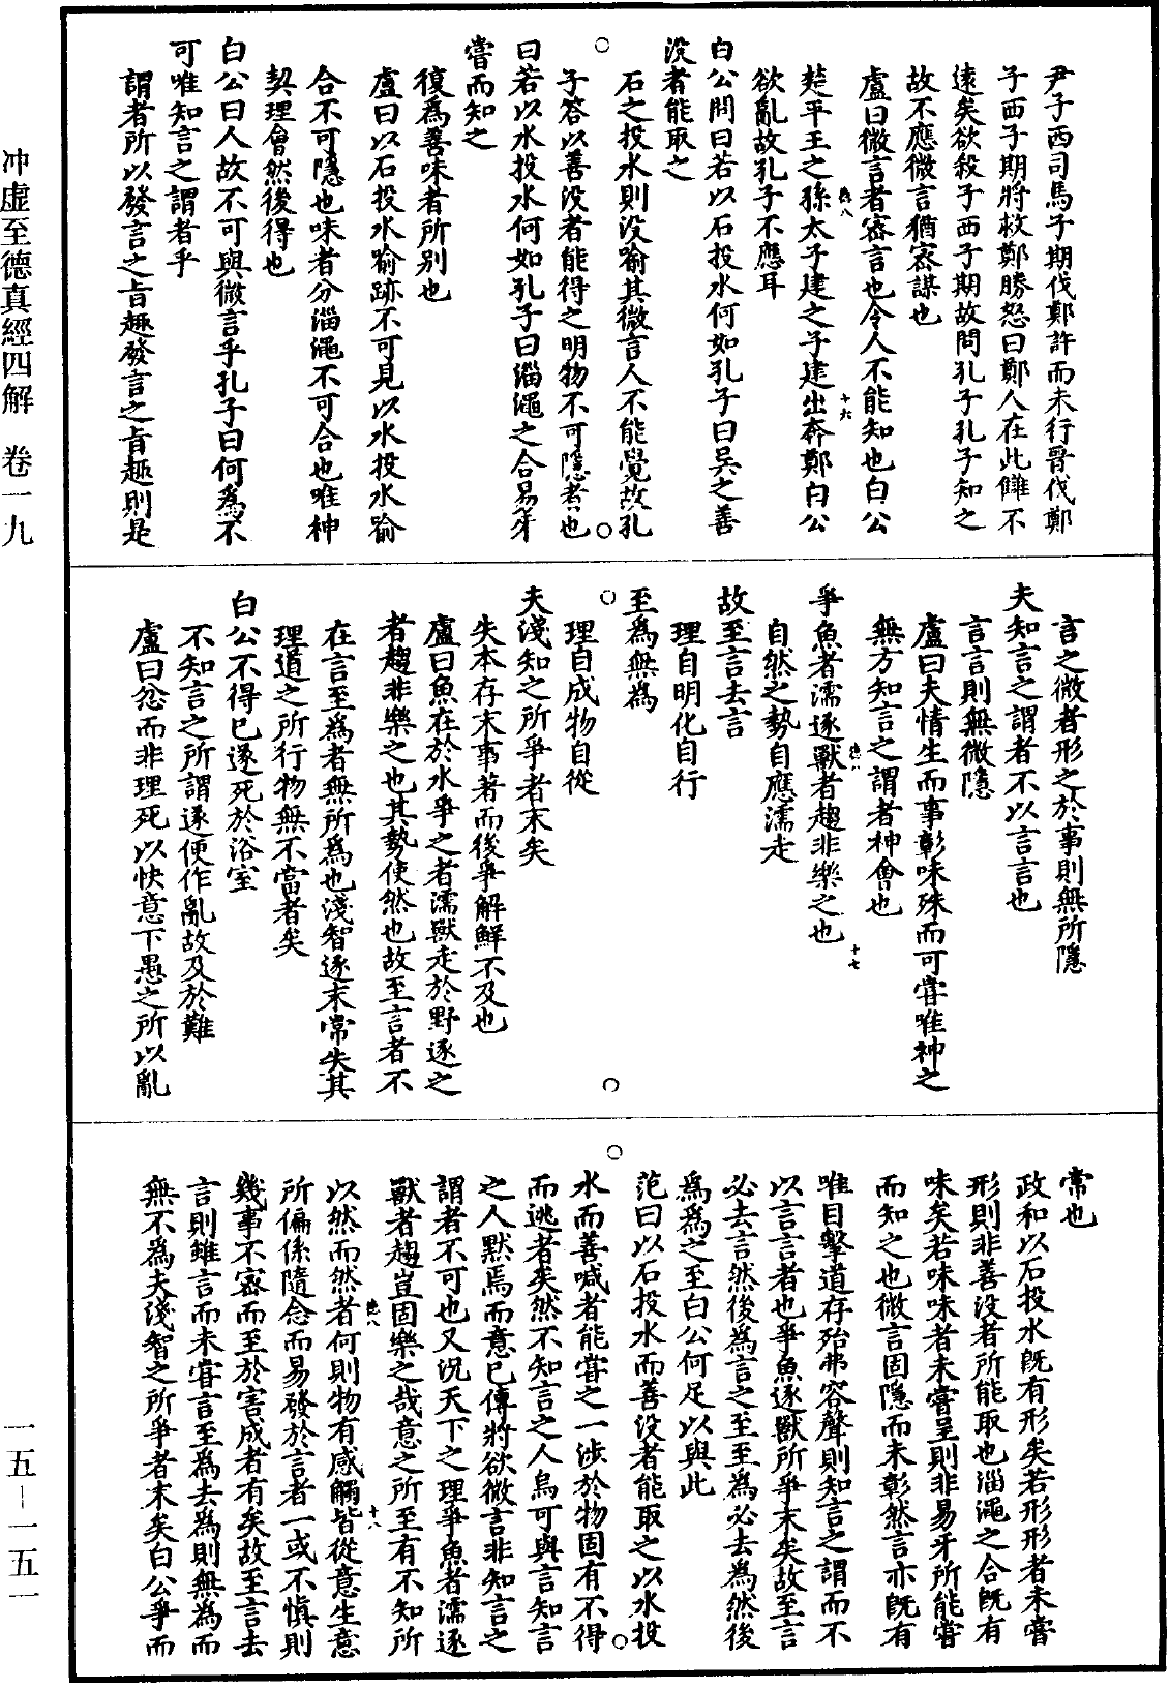 尹子西司馬子期伐鄭許而未行晉伐鄭
子西子期將救鄭勝怒曰鄭人在此讎不
遠矣欲殺子西子期故問孔子孔子知之
故不應微言猶密謀也
盧曰微言者密言也令人不能知也白公
楚平王之孫太子建之子建出奔鄭白公
欲亂故孔子不應耳
白公問曰若以石投水何如孔子曰吳之善
没者能取之
石之投水則没喻其微言人不能覺故孔
子答以善没者能得之明物不可隱者也
曰若以水投水何如孔子曰淄澠之合易牙
嘗而知之
復爲善味者所别也
盧曰以石投水喻跡不可見以水投水喻
合不可隱也味者分淄澠不可合也唯神
契理會然後得也
白公曰人故不可與微言乎孔子曰何爲不
可唯知言之謂者乎
謂者所以發言之旨趣發言之旨趣則是
言之微者形之於事則無所隱
夫知言之謂者不以言言也
言言則無微隱
盧曰夫情生而事彰味殊而可嘗唯神之
無方知言之謂者神會也
爭魚者濡逐獸者趨非樂之也
自然之勢自應濡走
故至言去言
理自明化自行
至爲無爲
理自成物自從
夫淺知之所爭者末矣
失本存末事著而後爭解鮮不及也
盧曰魚在於水爭之者濡獸走於野逐之
者趨非樂之也其勢使然也故至言者不
在言至爲者無所爲也淺智逐末常失其
理道之所行物無不當者矣
白公不得已遂死於浴室
不知言之所謂遂便作亂故及於難
盧曰忿而非理死以快意下愚之所以亂
常也
政和以石投水旣有形矣若形形者未嘗
形則非善没者所能取也淄澠之合旣有
味矣若味味者未嘗呈則非易牙所能嘗
而知之也微言固隱而未彰然言亦旣有
唯目擊道存殆弗容聲則知言之謂而不
以言言者也爭魚逐獸所爭末矣故至言
必去言然後爲言之至至爲必去爲然後
爲爲之至白公何足以與此
范曰以石投水而善没者能取之以水投
水而善喊者能嘗之一涉於物固有不得
而逃者矣然不知言之人烏可與言知言
之人黙焉而意已傳將欲微言非知言之
謂者不可也又況天下之理爭魚者濡逐
獸者趨豈固樂之哉意之所至有不知所
以然而然者何則物有感觸皆從意生意
所偏係隨念而易發於言者一或不愼則
幾事不密而至於害成者有矣故至言去
言則雖言而未嘗言至爲去爲則無爲而
無不爲夫淺智之所爭者末矣白公爭而
十六
十七
十八
冲虛至德真經四解　卷一九
一五－一五一